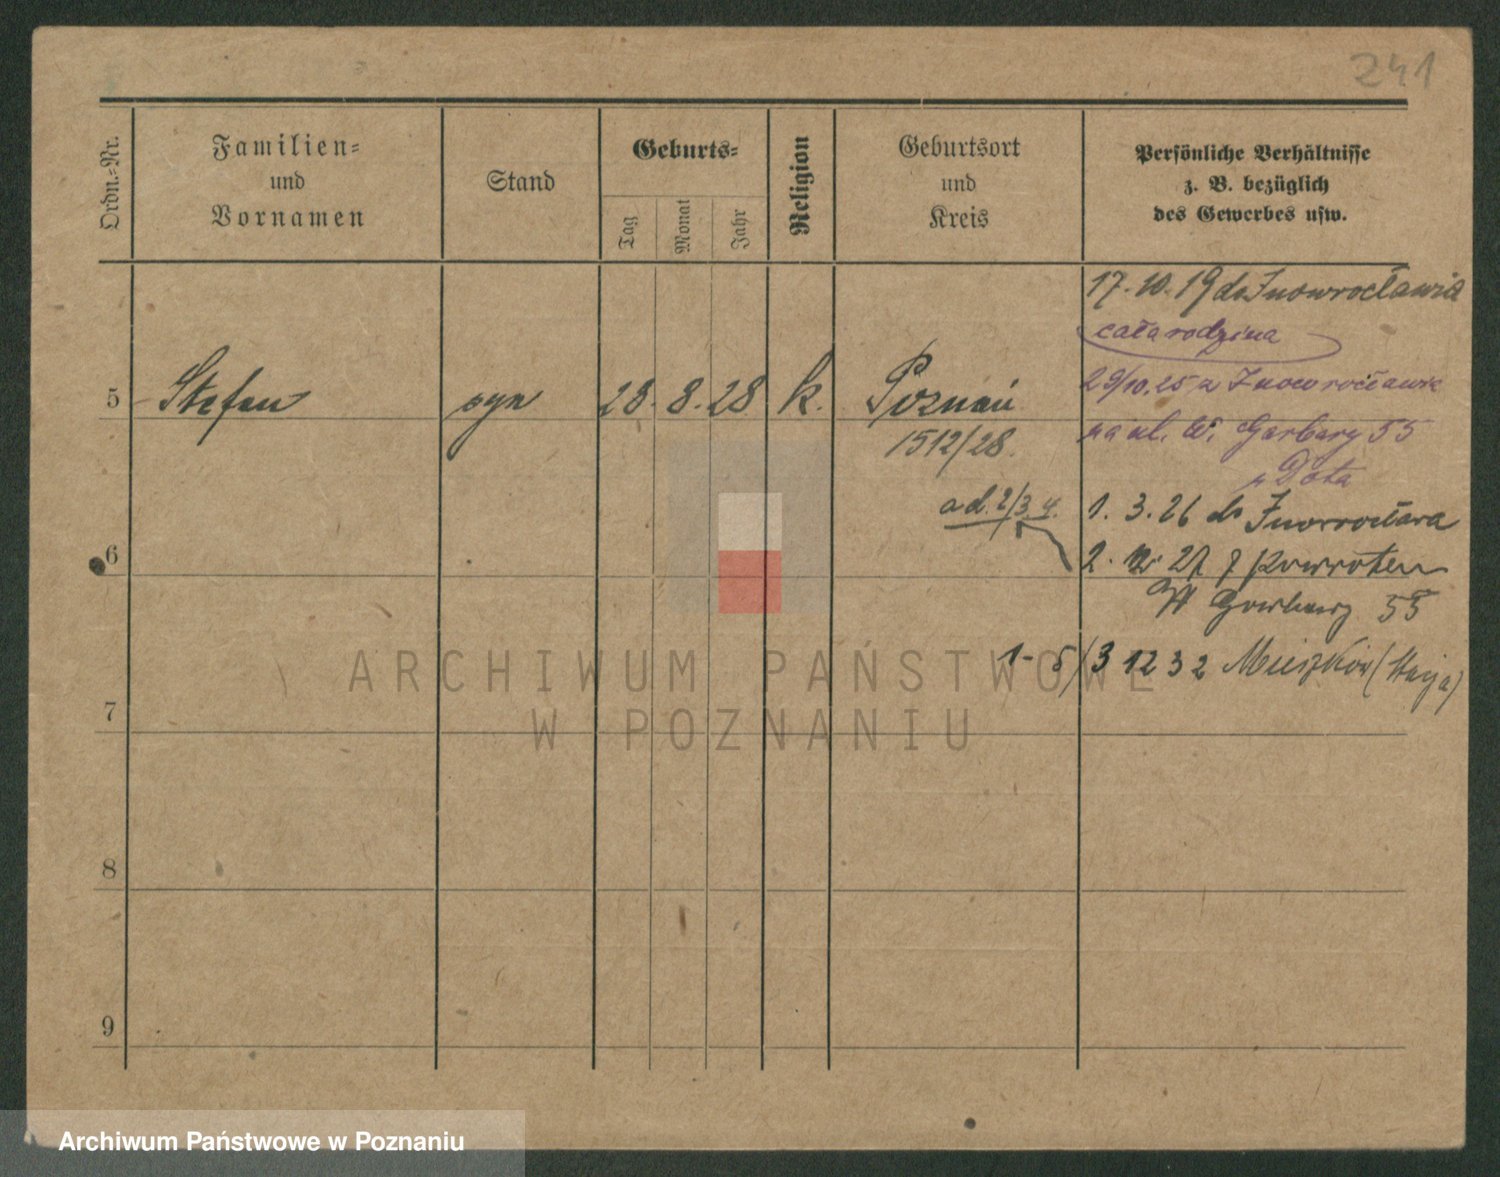 241
Ordn.-Nr.
Familien-
und
Vornamen
Stand
Geburts-
Tag
Monat
Jahr
Religion
Geburtsort
und
Kreis
Persönliche Verhältnisse
z. B. bezüglich
des Gewerbes usw.
17. 10. 19 do Inowrocławia
cała rodzina
29/10.25 z Inowrocławia
5 Stefan syn 28. 8. 28 k. Poznań
na ul. W. Garbary 55
1512/28.
ad. 2/3.4. 1. 3. 26 do
6
2. 27 z powrotem
W Garbary 55
1-5/3 12 32 Mieszków (Stacja)
7
8
9
ARCHIWUM PAŃSTWOWE
W POZNANIU
Archiwum Państwowe w Poznaniu